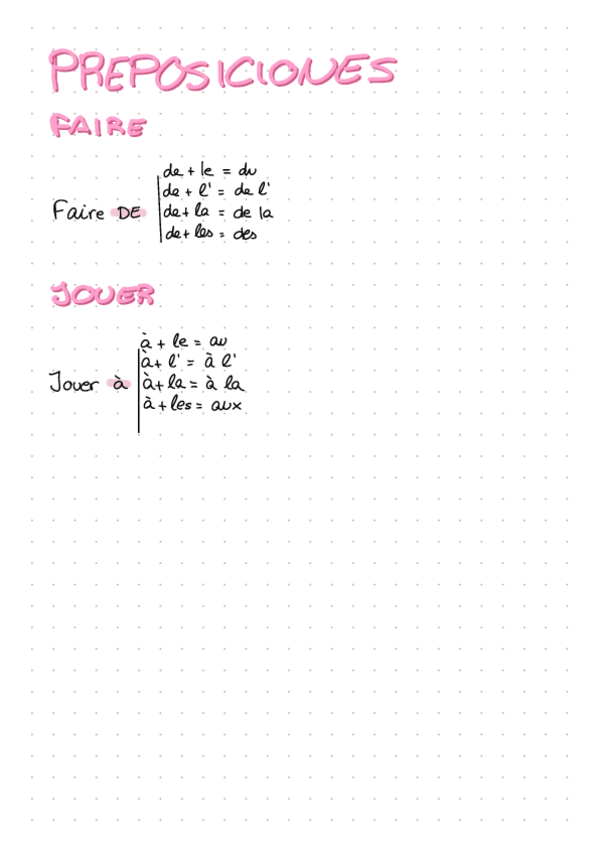 PREPOSICIONES
FAIRE
de + le = du
de + l' = de l'
Faire DE
de + la = de la
de + les = des
JOUER
à + le = au
à + l' = à l'
Jouer à
à + la = à la
à + les = aux